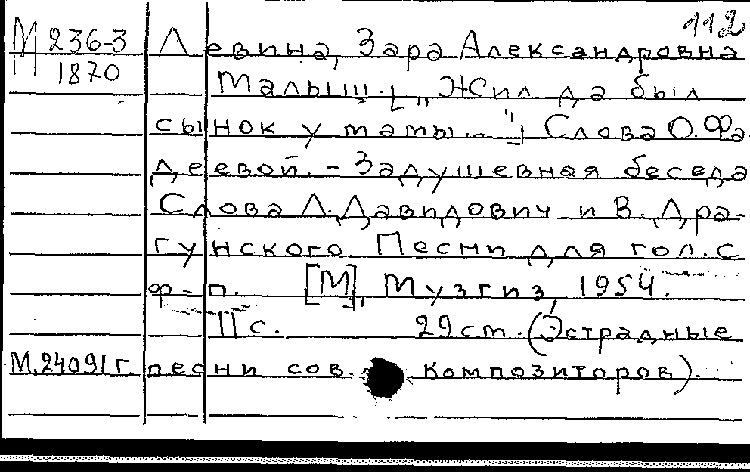 112
М 236-3 Левина, Зара Александровна
1870 Малыш. [„Жил да был
сынок у мамы..."] Слова О. Фа-
деевой. - Задушевная беседа
Слова Л. Давидович и В. Дра-
гунского. Песни для гол. с
ф-п. [М], Музгиз, 1954.
11 с. 29 см. (Эстрадные
М.24091г песни сов. композиторов).